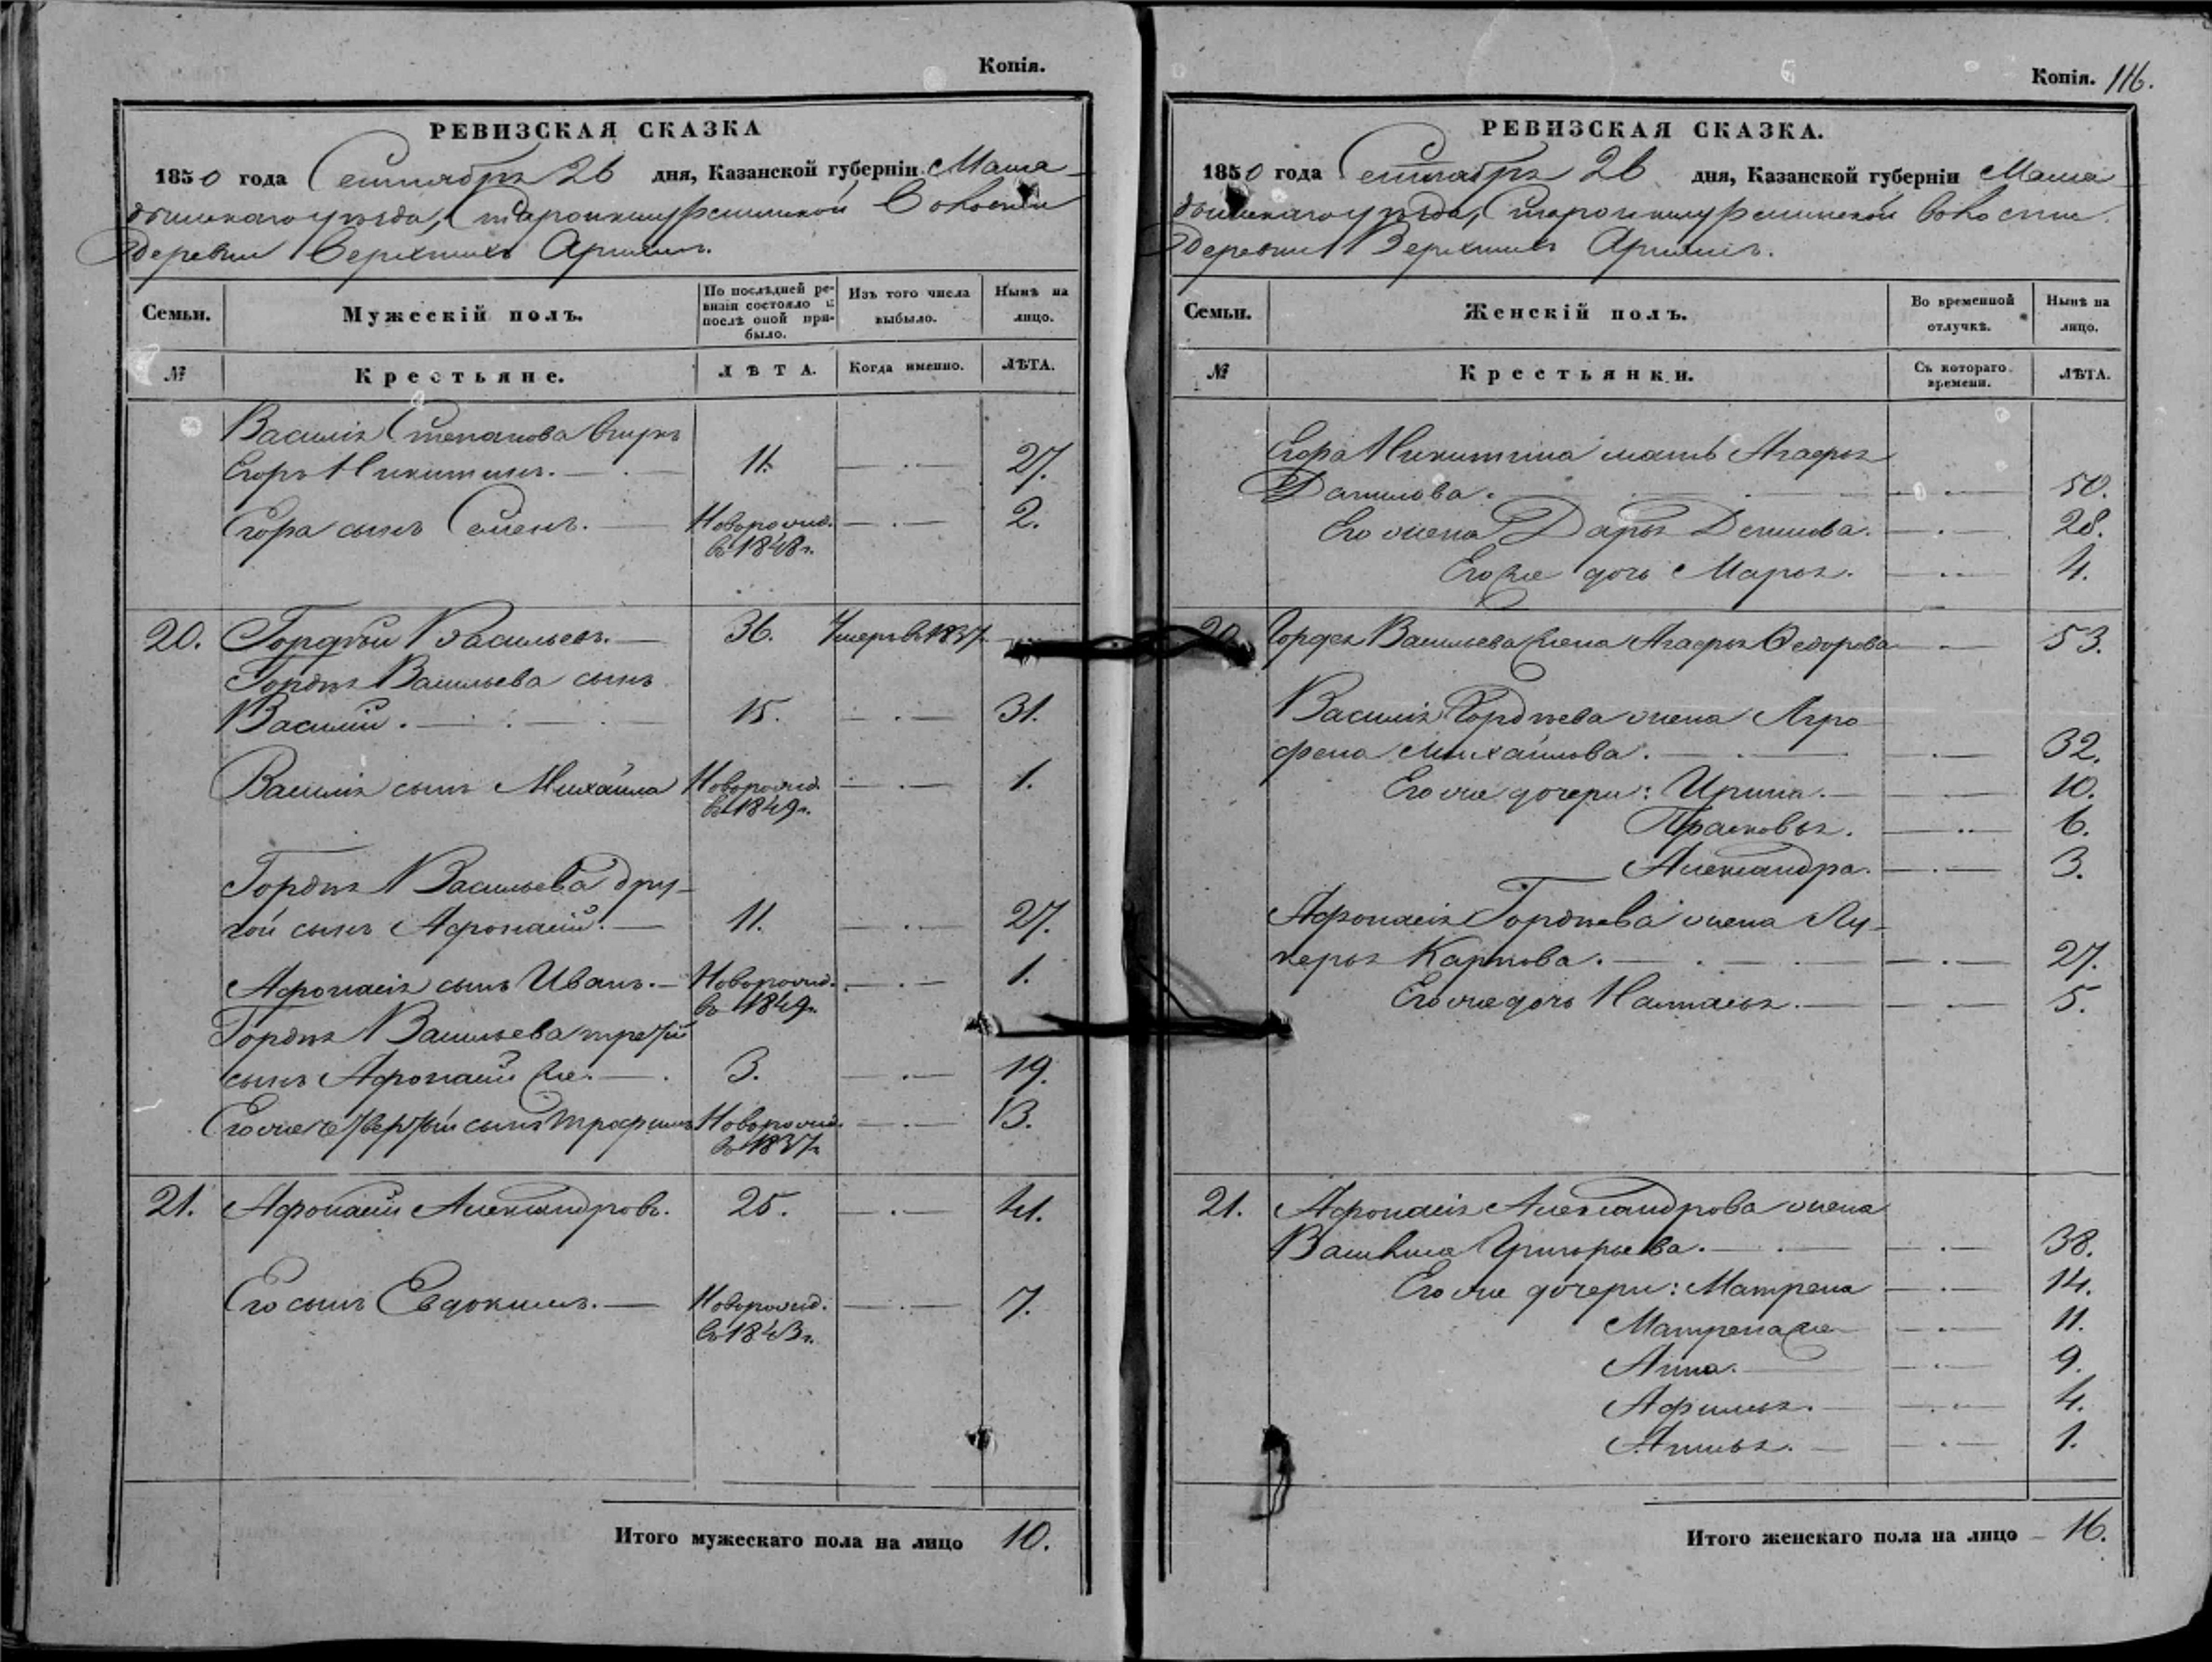 Копія.
РЕВИЗСКАЯ СКАЗКА
1850 года Сентября 26 дня, Казанской губерніи Мама-
дышскаго уѣзда, Волости
деревни Верхнихъ Аришъ.
Семьи.
Мужескій полъ.
По послѣдней ре-
визіи состояло и
послѣ оной при-
было.
Изъ того числа
выбыло.
Нынѣ на
лицо.
№
Крестьяне.
ЛѢТА.
Когда именно.
ЛѢТА.
Василія Степанова внукъ
Егоръ Никитинъ. 11. 27.
Егора сынъ Семенъ. Новорожд. 2.
въ 1848 г.
20. Гордѣй Васильевъ. 36. Умеръ въ 1837.
Гордѣя Васильева сынъ
Василій. 15. 31.
Василія сынъ Михайла Новорожд. 1.
въ 1849 г.
Гордѣя Васильева дру-
гой сынъ Афонасій. 11. 27.
Афонасія сынъ Иванъ. Новорожд. 1.
въ 1849 г.
Гордѣя Васильева третій
сынъ Афонасій же. 3. 19.
Его же четвертый сынъ Трофимъ Новорожд. 13.
въ 1837 г.
21. Афонасій Александровъ. 25. 41.
Его сынъ Евдокимъ. Новорожд. 7.
въ 1843 г.
Итого мужескаго пола на лицо 10.
Копія. 116.
РЕВИЗСКАЯ СКАЗКА.
1850 года Сентября 26 дня, Казанской губерніи Мама-
дышскаго уѣзда, волости.
деревни Верхнихъ Аришъ.
Семьи.
Женскій полъ.
Во временной
отлучкѣ.
Нынѣ на
лицо.
№
Крестьянки.
Съ котораго
времени.
ЛѢТА.
Егора Никитина мать Агафья
Данилова. 50.
Его жена Дарья Денисова. 28.
Его же дочь Марья. 4.
20. Гордея Васильева жена Агафья Федорова 53.
Василія Гордѣева жена Агро-
фена Михайлова. 32.
Его же дочери: Ирина. 10.
Прасковья. 6.
Александра. 3.
Афонасія Гордѣева жена Лу-
керья Карпова. 27.
Его же дочь Наталья. 5.
21. Афонасія Александрова жена
Василиса Григорьева. 38.
Его же дочери: Матрена 14.
Матрена же 11.
Анна. 9.
Афимья. 4.
1.
Итого женскаго пола на лицо 16.